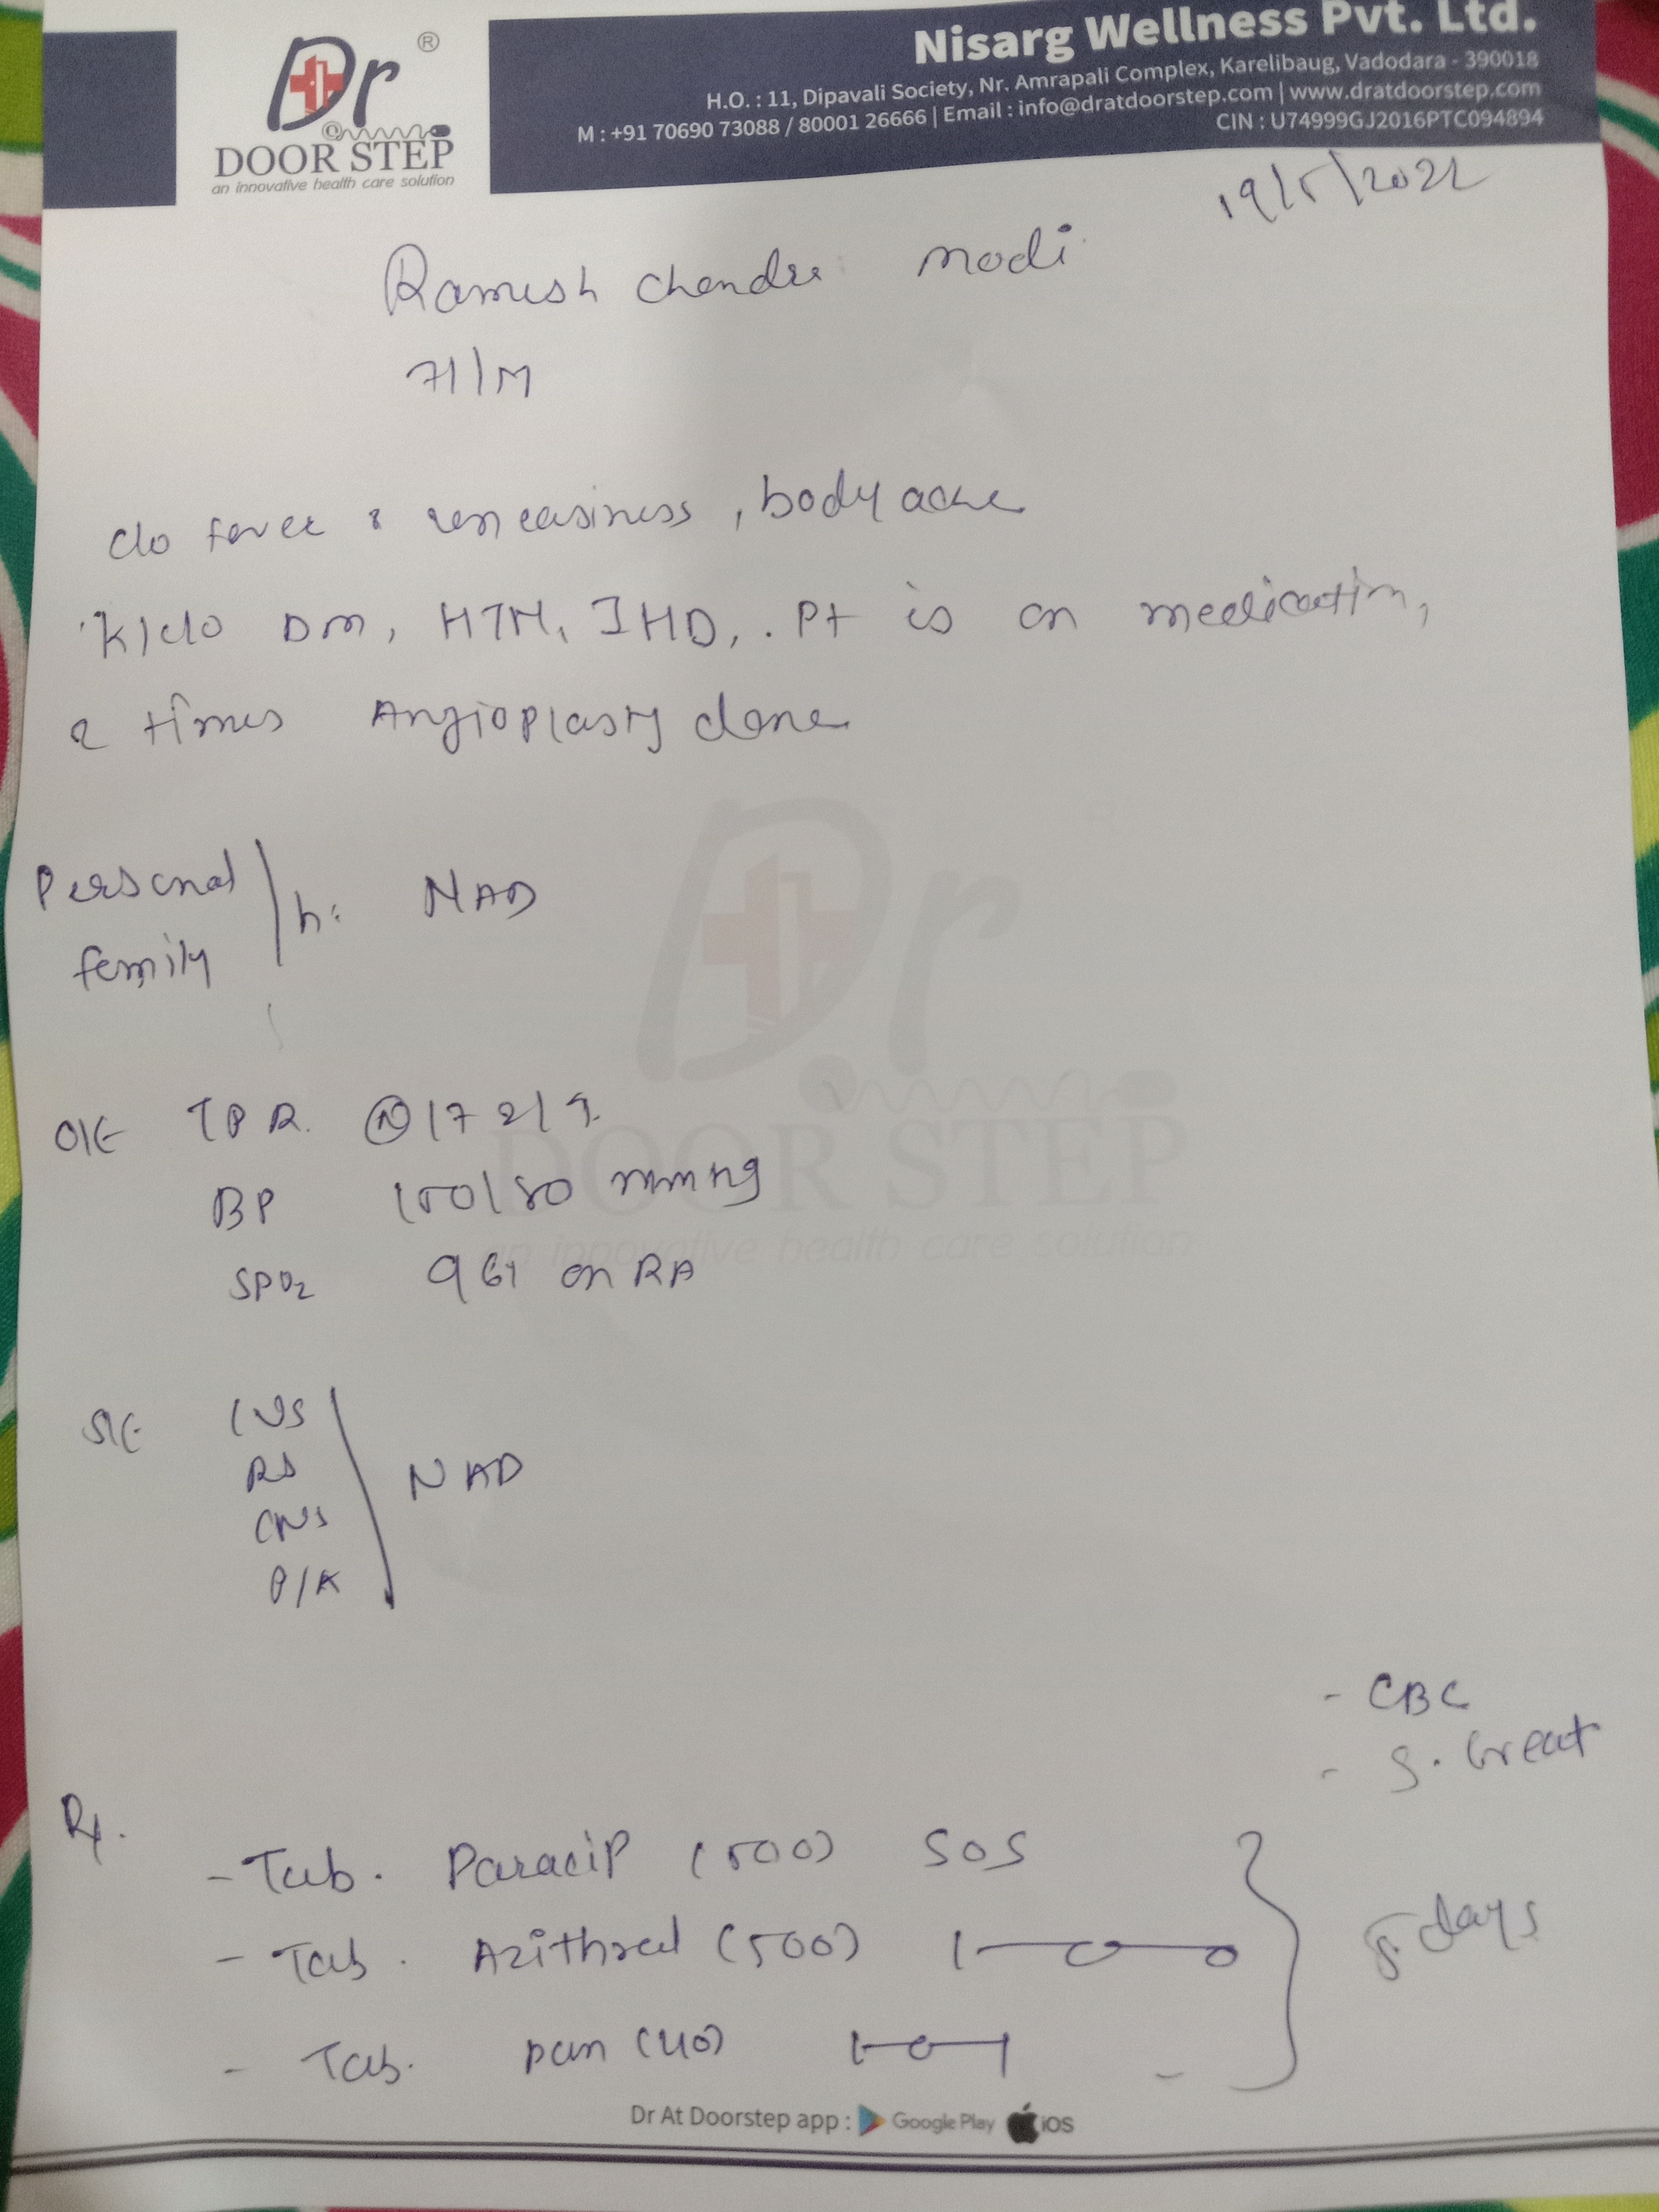 Dr ®
DOOR STEP
an innovative health care solution
Nisarg Wellness Pvt. Ltd.
H.O. : 11, Dipavali Society, Nr. Amrapali Complex, Karelibaug, Vadodara - 390018
M : +91 70690 73088 / 80001 26666 | Email : info@dratdoorstep.com | www.dratdoorstep.com
CIN : U74999GJ2016PTC094894
19/5/2022
Ramesh Chandra Modi
71/M
c/o fever & uneasiness, body ache
K/c/o DM, HTN, IHD, . Pt is on medication,
2 times Angioplasty done
Personal
family
h: NAD
O/E TPR. (N) / 72 /
BP 150/80 mmHg
SPO2 96% on RA
S/E CVS
RS
CNS
P/A
NAD
Dr
DOOR STEP
an innovative health care solution
- CBC
- S. Creat
Rx.
- Tab. Paracip (500) SOS
- Tab. Azithral (500) 1—0—0
- Tab. pan (40) 1—0—1
days
Dr At Doorstep app : Google Play iOS